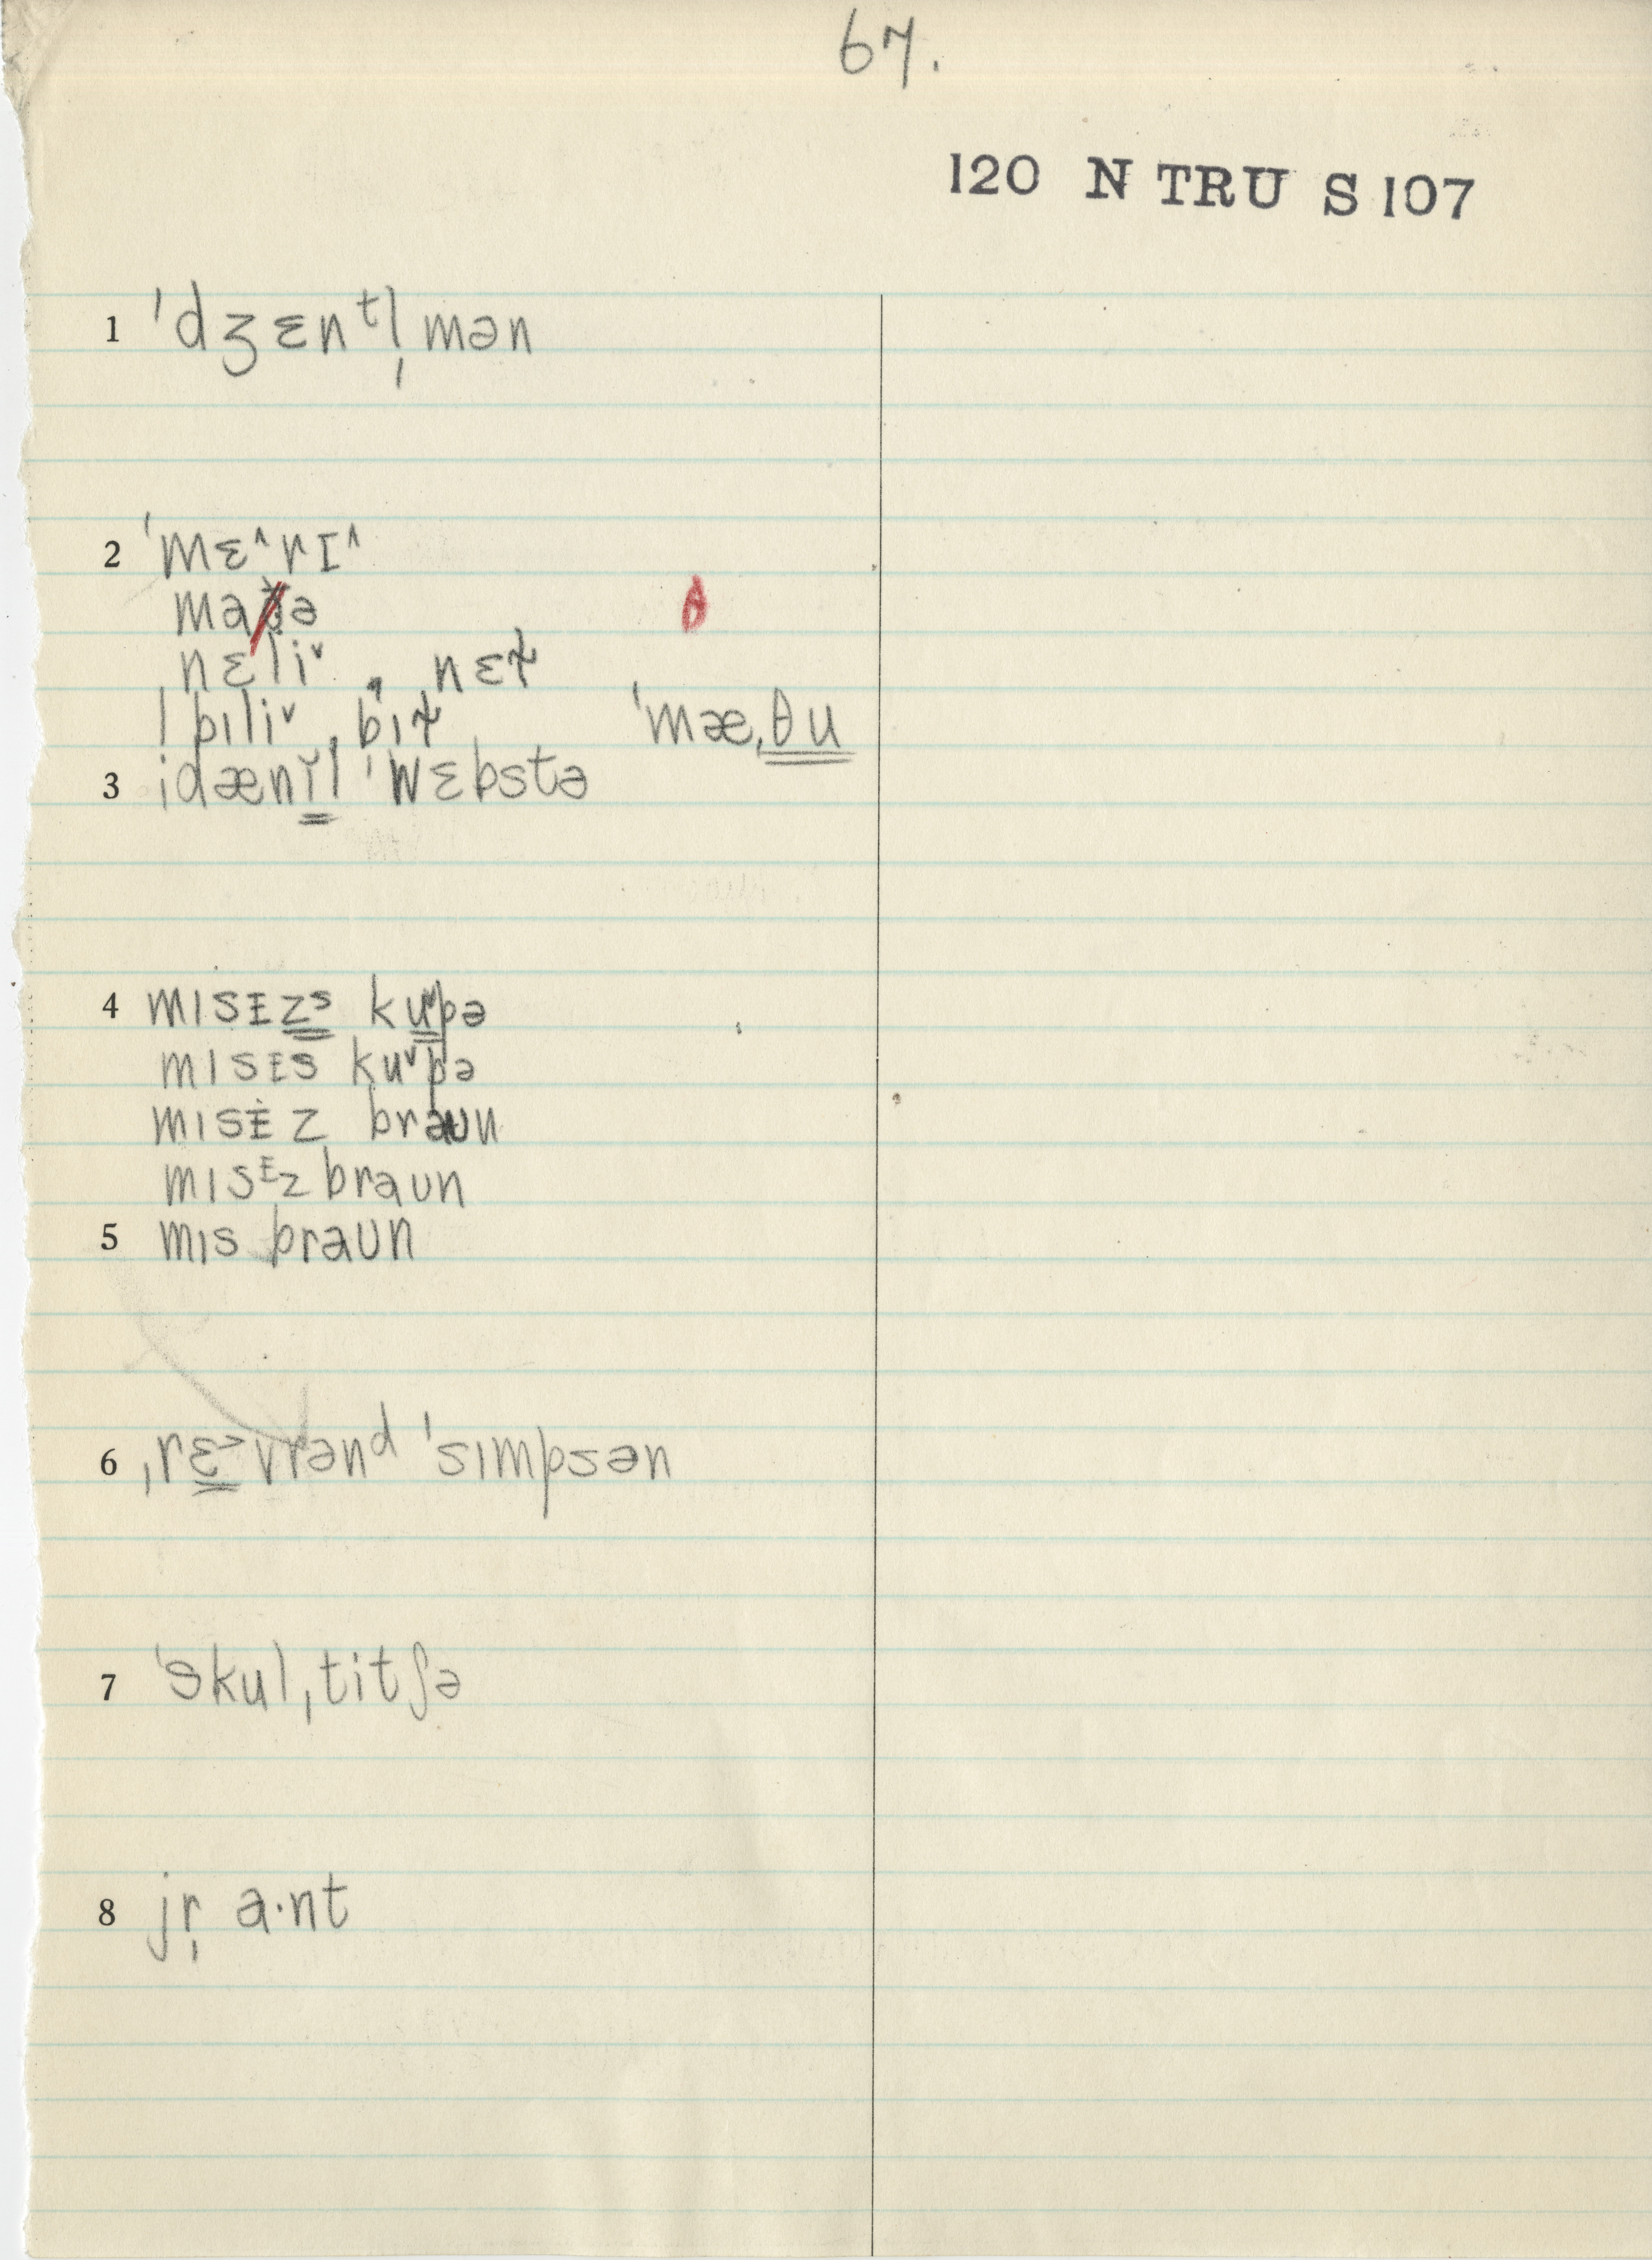 67.
120 N TRU S 107
1 ˈdʒɛnᵗl̩mən
2 ˈmɛ˄rɪ˄
maðə θ
nɛliˇ, nɛɫ
bɪliˇ, bɪɫ ˈmæˌθu
3 ˌdænɪ̆l ˈwɛbstə
4 mɪsɪzˢ kuˇpə
mɪsɪs kuˇpə
mɪsɪ̇z braun
mɪsᶦz braun
5 mɪs braun
6 ˌrɛ˃vrənᵈ ˈsɪmpsən
7 ˈskulˌtitʃə
8 jr̩ a·nt